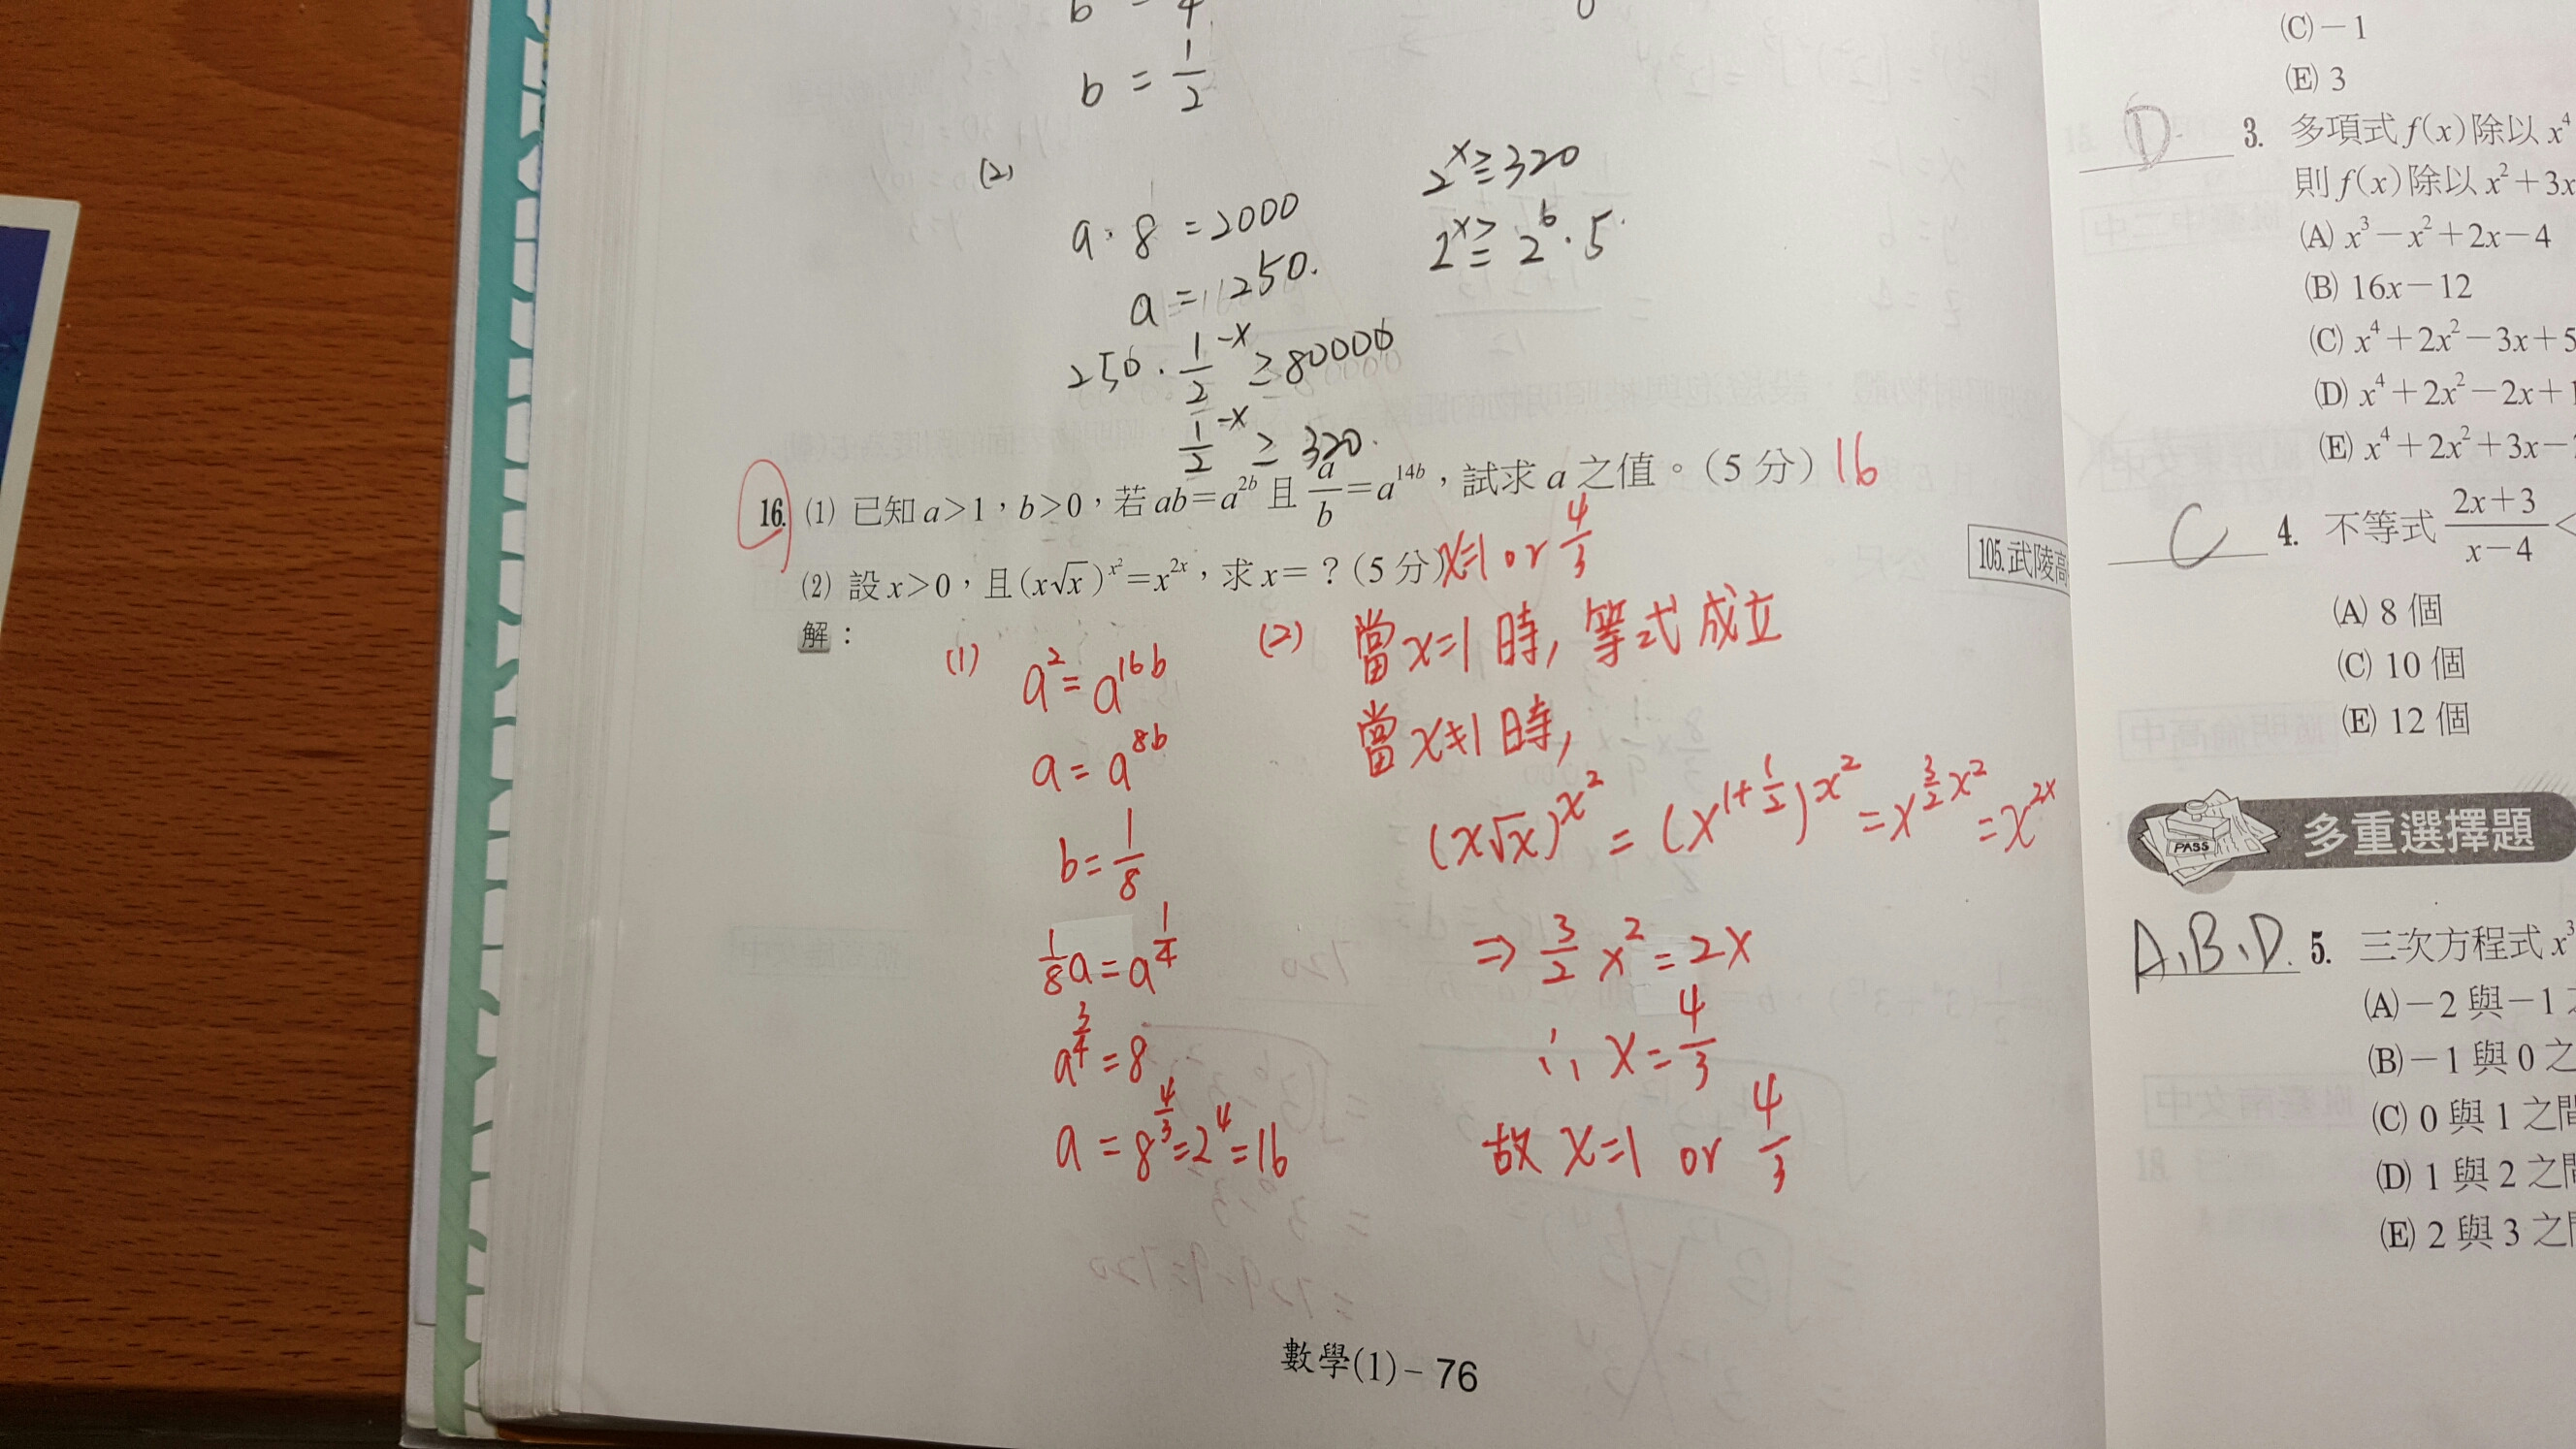 b = 1/2
(2)
a · 8 = 2000
a = 250.
250 · 1/2^-x ≥ 80000
1/2^-x ≥ 320.
2^x ≥ 320
2^x ≥ 2^6 · 5
16. (1) 已知 a>1,b>0,若 ab=a^2b 且 a/b=a^14b,試求 a 之值。(5 分) 16
(2) 設 x>0,且(x√x)^x²=x^2x,求 x=?(5 分) x=1 or 4/3
105.武陵高
解:
(1)
a²=a^16b
a=a^8b
b=1/8
1/8 a=a^1/4
a^3/4=8
a=8^4/3=2^4=16
(2) 當x=1時, 等式成立
當x≠1時,
(x√x)^x² = (x^1+1/2)^x² = x^3/2 x² = x^2x
⇒ 3/2 x² = 2x
∴ x = 4/3
故 x=1 or 4/3
數學(1)-76
(C)-1
(E) 3
D 3. 多項式 f(x)除以 x^4
則 f(x)除以 x²+3x
(A) x³-x²+2x-4
(B) 16x-12
(C) x^4+2x²-3x+5
(D) x^4+2x²-2x+1
(E) x^4+2x²+3x-
C 4. 不等式 2x+3/x-4 <
(A) 8 個
(C) 10 個
(E) 12 個
PASS 多重選擇題
A、B、D. 5. 三次方程式 x³
(A)-2 與-1
(B)-1 與 0 之
(C) 0 與 1 之間
(D) 1 與 2 之間
(E) 2 與 3 之間